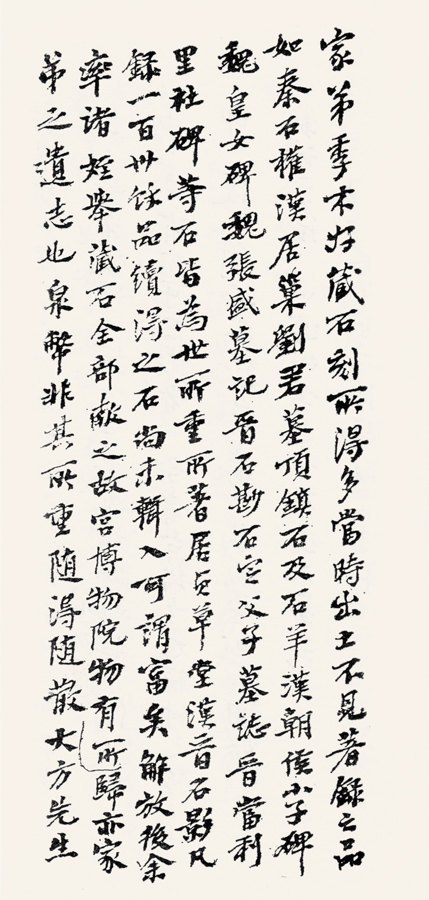 家弟季木好藏石刻所得多當時出土不見著録之品
如秦石權漢居巢劉君墓頂鎮石及石羊漢朝侯小子碑
魏皇女碑魏張盛墓記晉石尠石定父子墓誌晉當利
里社碑等石皆為世所重所著居貞草堂漢晉石影凡
録一百卅餘品續得之石尚未輯入可謂富矣解放後余
率諸姪舉藏石全部献之故宮博物院物有所歸亦家
弟之遺志也泉幣非其所重随得随散大方先生